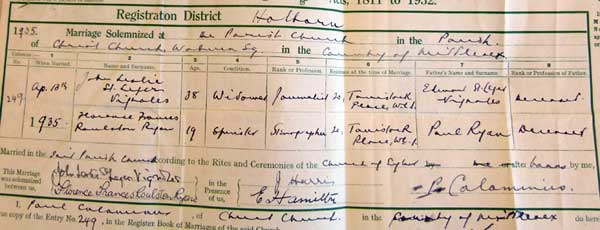 Acts, 1811 to 1932.
Registration District Holborn
1935. Marriage Solemnized at The Parish Church in the Parish
of Christ Church, Woburn Sq in the County of Middlesex
Columns:— 1 2 3 4 5 6 7 8
No. When Married. Name and Surname. Age. Condition. Rank or Profession. Residence at the time of Marriage. Father's Name and Surname. Rank or Profession of Father.
249. Ap. 18th 1935 John Leslie St. Leger Vignoles 38 Widower Journalist 20, Tavistock Place, W.C.1. Edmund St. Leger Vignoles Deceased
Florence Frances Roulston Ryan 19 Spinster Stenographer 20, Tavistock Place, W.C.1. Paul Ryan Deceased
Married in the said Parish Church according to the Rites and Ceremonies of the Church of England by or after Banns by me,
This Marriage was solemnized between us, John Leslie St Leger Vignoles
Florence Frances Roulston Ryan
in the Presence of us, J Harris
E. Hamilton
P. Calaminus
I, Paul Calaminus, of Christ Church, in the County of Middlesex do here
true copy of the Entry No. 249, in the Register Book of Marriages of the said Church